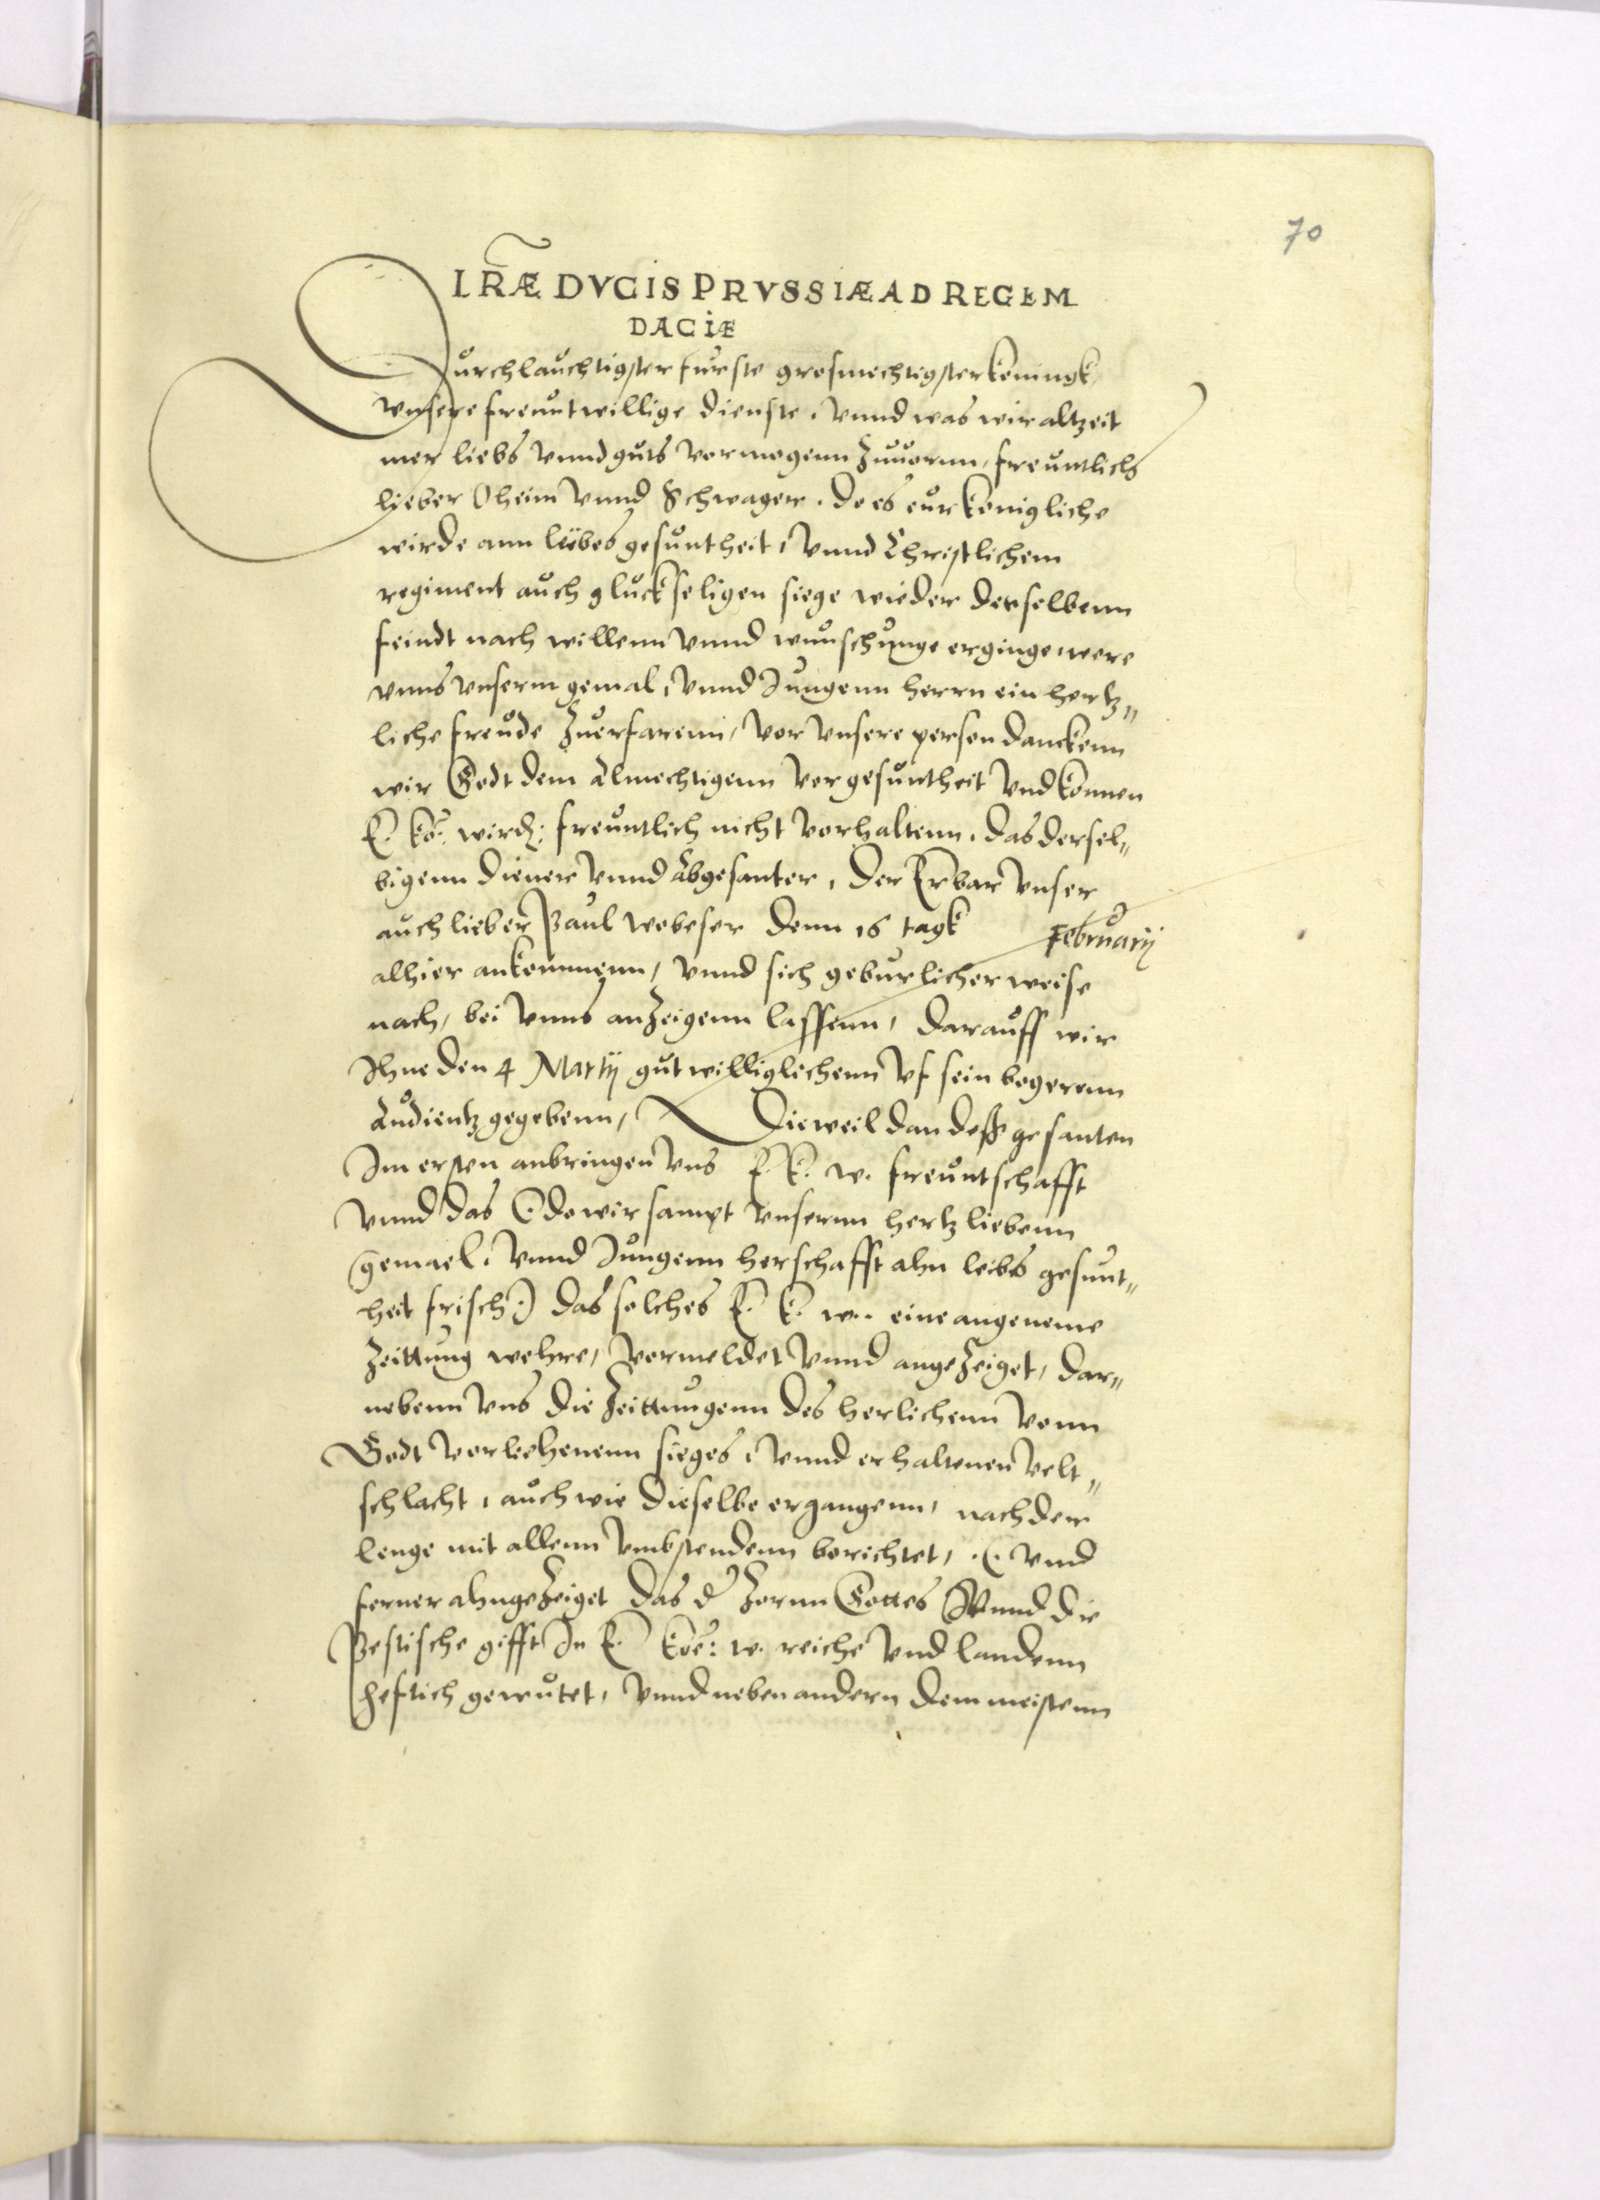 70
LRÆ DVCIS PRVSSIÆ AD REGEM
DACIÆ
Durchlauchtigster furste grosmechtigster koningk
vnsere freuntwillige dienste, vnnd was wir altzeit
mer liebs vnnd guts vormogenn zuuornn, freuntlichs
lieber Oheim vnnd Schwager. do es eur konigliche
wirde ann liebes gesuntheit, vnnd Christlichem
regiment auch gluckseligen siege wieder derselbenn
feindt nach willenn vnnd wunschunge erginge were
vnns vnserm gemal, vnnd Jungenn herrn ein hertz„
liche freude zuerfarenn, vor vnsere person danckenn
wir Godt dem Almechtigenn vor gesuntheit vnd konnen
E. ko: wird: freuntlich nicht vorhaltenn. das dersel„
bigenn diener vnnd Abgesanter, der Erbar vnser
auch lieber Paul Wobeser denn 16 tagk February
alhier ankommenn, vnnd sich geburlicher weise
nach, bei vnns anzeigenn lassenn, darauff wir
Ihne den 4 Martij gutwilliglichenn vf sein begerenn
Audientz gegebenn, Dieweil dan deß gesanten
Im ersten anbringen vns E. k. w. freuntschafft
vnnd das (: do wir sampt vnsernn hertzliebenn
gemael, vnnd Jungenn herschafft ahn leibs gesunt„
heit frisch :) das solches E. k. w.. eine angeneme
zeittung wehre, vormeldet vnnd angezeiget, dar„
nebenn vns die zeittungenn des herlichenn vonn
Godt vorliehenenn sieges, vnnd erhaltenen velt„
schlacht, auch wie dieselbe ergangenn, nach der
lenge mit allenn vmbstendenn berichtet, (: vnnd
ferner ahngezeiget das d zornn Gottes vnnd die
Pestische gifft In E. koe: w. reiche vnd landenn
heftich gewutet, vnnd neben andern dem meistenn